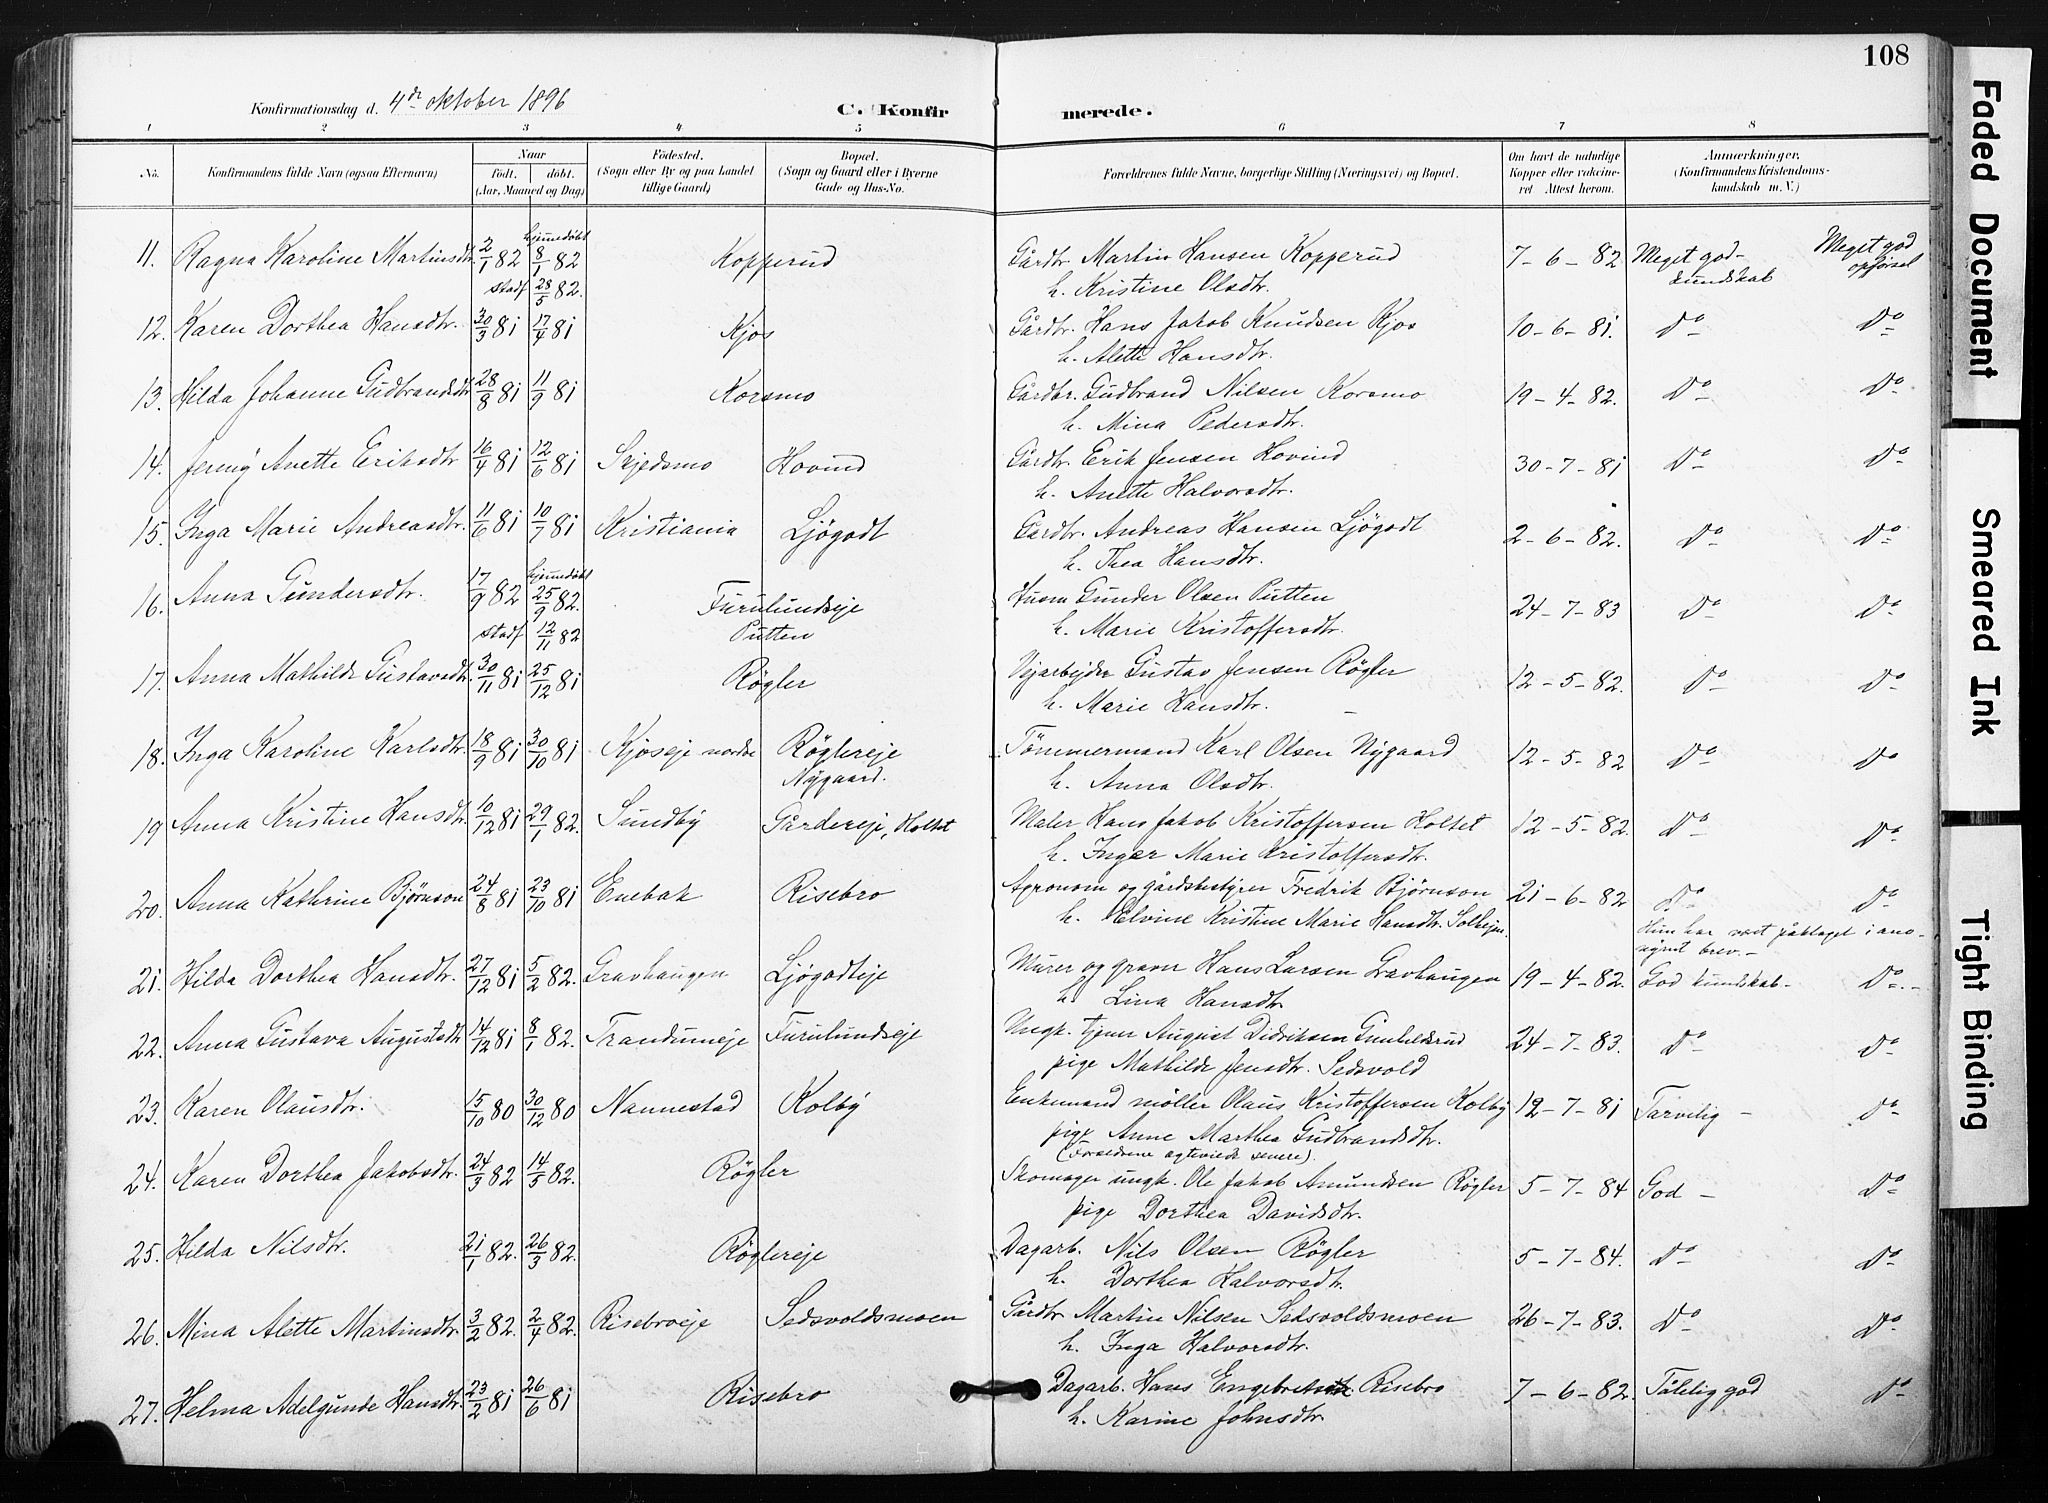 108
Konfirmationsdag d. 4de oktober 1896
C. Konfirmerede.
1 2 3 4 5 6 7 8
No. Konfirmandens fulde Navn (ogsaa Efternavn) Naar født. døbt. (Aar, Maaned og Dag) Fødested. (Sogn eller By og paa Landet tillige Gaard) Bopæl. (Sogn og Gaard eller i Byerne Gade og Hus-No. Forældrenes fulde Navne, borgerlige Stilling (Næringsvei) og Bopæl. Om havt de naturlige Kopper eller vakcineret Attest herom. Anmærkninger. (Konfirmandens Kristendomskundskab m. V.)
11. Ragna Karoline Martinsdtr. 2/1 82 hjemmedøbt 8/1 82 stadf 28/5 82. Kopperud Gårdbr. Martin Hansen Kopperud 7-6-82 Meget god- kundskab Meget god opførsel
h. Kristine Olsdtr.
12. Karen Dorthea Hansdtr. 30/3 81 17/4 81 Kjos Gårdbr. Hans Jakob Knudsen Kjos 10-6-81. Do Do
h. Alette Hansdtr.
13. Hilda Johanne Gudbrandsdtr 28/8 81 11/9 81 Korsmo Gårdbr. Gudbrand Nilsen Korsmo 19-4-82. Do Do
h. Mina Pedersdtr.
14. Jenny Anette Eriksdtr 16/4 81 12/6 81 Skjedsmo Hovind Gårdbr. Erik Jensen Hovind 30-7-81 Do Do
h. Anette Halvorsdtr.
15. Inga Marie Andreasdtr. 11/6 81 10/7 81 Kristiania Ljøgodt Gårdbr. Andreas Hansen Ljøgodt 2-6-82. Do Do
h. Thea Hansdtr.
16. Anna Gundersdtr. 17/9 82 hjemmedøbt 25/9 82. stadf 12/11 82 Furulundseje Putten Husm Gunder Olsen Putten 24-7-83 Do Do
h. Marie Kristoffersdtr.
17. Anna Mathilde Gustavsdtr. 30/11 81 25/12 81 Røgler Vejarbejder Gustav Jensen Røgler 12-5-82. Do Do
h. Marie Hansdtr.
18. Inga Karoline Karlsdtr. 18/9 81 30/10 81 Kjoseje nordre Røglereje Nygaard. Tømmermand Karl Olsen Nygaard 12-5-82 Do Do
h. Anna Olsdtr.
19. Anna Kristine Hansdtr. 10/12 81 29/1 82. Sundby Gårdereje, Holtet Maler Hans Jakob Kristoffersen Holtet 12-5-82. Do Do
h. Inger Marie Kristoffersdtr.
20. Anna Kathrine Bjørnson 24/8 81 23/10 81 Enebak Risebro Agronom og gårdsbestyrer Fredrik Bjørnson 21-6-82 Do Do
h. Elvine Kristine Marie Hansdtr. Solhejm. Hun har været påklaget i anonymt brev.-
21. Hilda Dorthea Hansdtr. 27/12 81 5/2 82. Gravhaugen Ljøgodteje Murer og graver Hans Larsen Gravhaugen 19-4-82. God kundskab- Do
h. Lina Hansdtr.
22. Anna Gustava Augustsdtr 14/12 81 8/1 82. Trandumeje Furulundseje Ungk. tjener August Didriksen Gunhildsrud 24-7-83. Do Do
pige Mathilde Jensdtr. Sedsvold
23. Karen Olausdtr. 15/10 80 30/12 80 Nannestad Kolby Enkemand møller Olaus Kristoffersen Kolby 12-7-81 Tarvelig - Do
pige Anne Marthea Gudbrandsdtr.
(Forældrene ægteviede senere).
24. Karen Dorthea Jakobsdtr. 24/3 82 14/5 82. Røgler Skomager ungk. Ole Jakob Amundsen Røgler 5-7-84 God - Do
pige Dorthea Davidsdtr.
25. Hilda Nilsdtr. 21/1 82. 26/3 82. Røglereje Dagarb. Nils Olsen Røgler 5-7-84. Do Do
h. Dorthea Halvorsdtr.
26. Mina Alette Martinsdtr. 3/2 82. 2/4 82. Risebroeje Sedsvoldsmoen Gårdbr Martin Nilsen Sedsvoldsmoen 26-7-83. Do Do
h. Inga Halvorsdtr.
27. Helma Adelgunde Hansdtr. 23/2 81 26/6 81 Risebro Dagarb. Hans Engebretsen Risebro 7-6-82. Tålelig god Do
h. Karine Johnsdtr.
Faded Document
Smeared Ink
Tight Binding